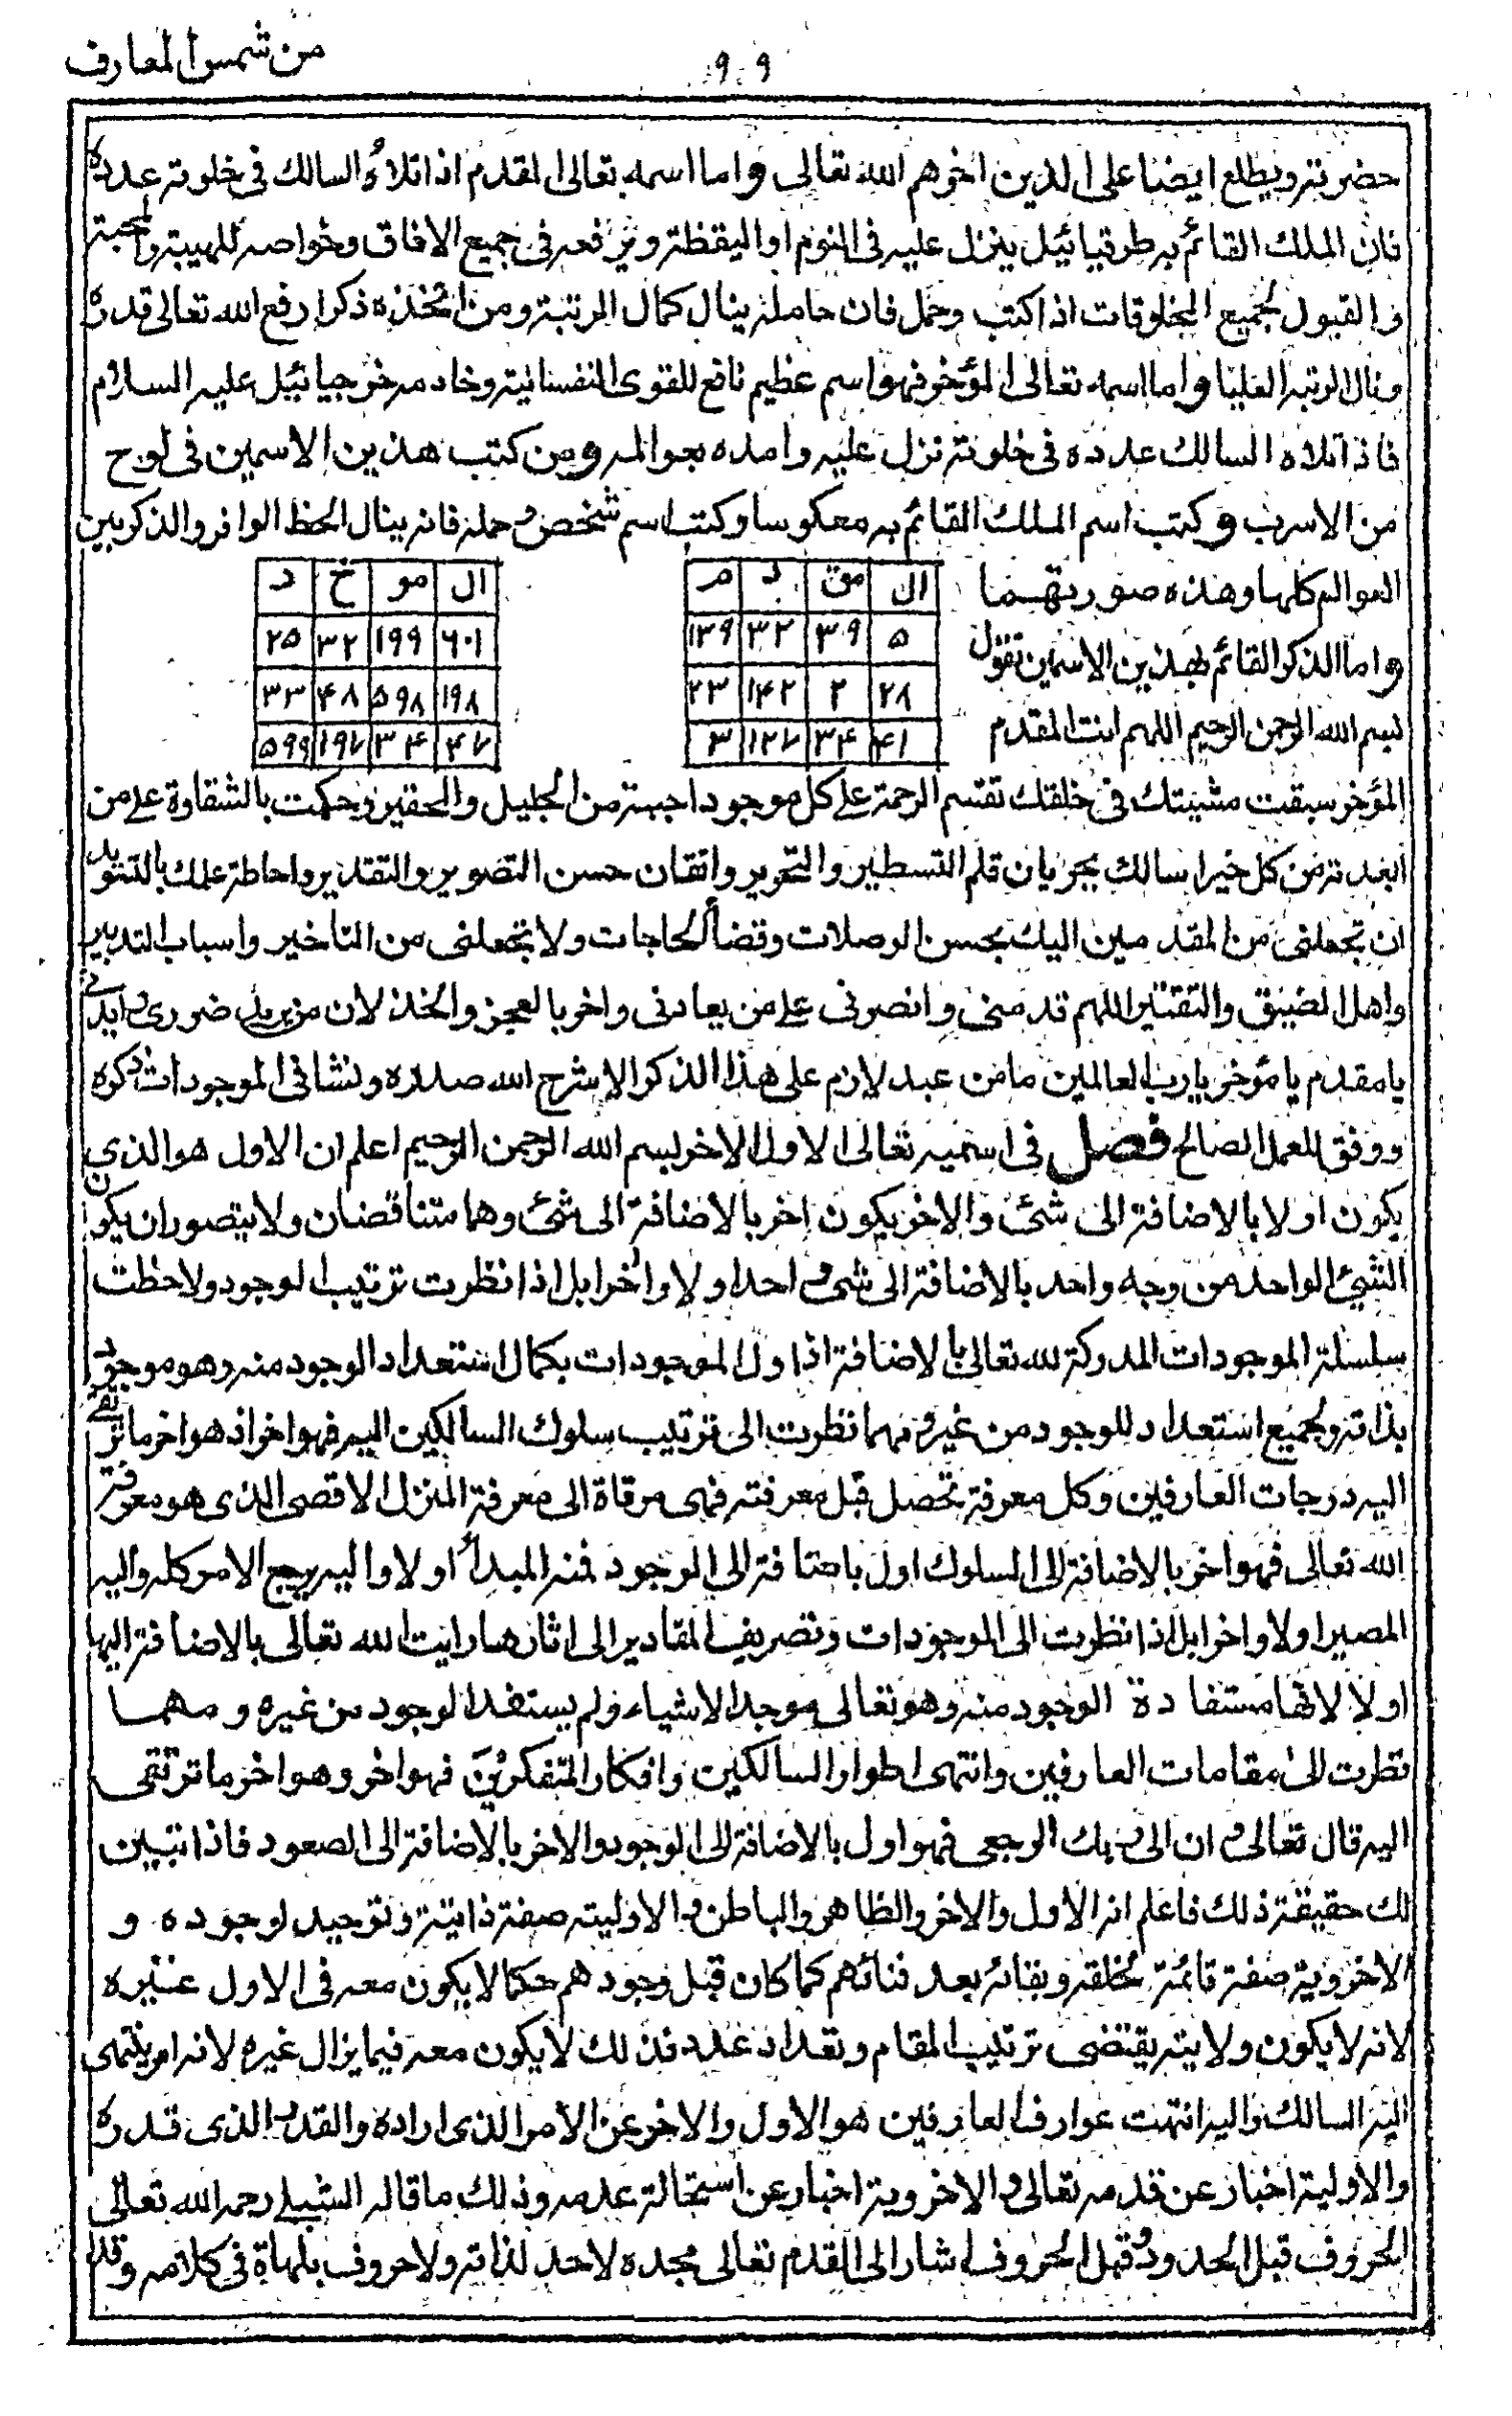 ٩٩
من شمس المعارف
حضرته ويطلع ايضا على الذين اخرهم الله تعالى واما اسمه تعالى المقدم اذا تلاه السالك فى خلوته عدده
فان الملك القائم به طرقيائيل ينزل عليه فى النوم او اليقظة ويرفعه فى جميع الافاق وخواصه للهيبة والمحبة
والقبول لجميع المخلوقات اذا كتب وحمل فان حامله ينال كمال المرتبة ومن اتخذه ذكرا رفع الله تعالى قدره
ونال الرتبة العليا واما اسمه تعالى المؤخر فهو اسم عظيم نافع للقوى النفسانية وخادمه خرجيائيل عليه السلام
فاذا تلاه السالك عدده فى خلوته نزل عليه وامده بعوالمه ومن كتب هذين الاسمين فى لوح
من الاسرب وكتب اسم الملك القائم به معكوسا وكتب اسم شخص وحمله فانه ينال الحظ الوافر والذكر بين
العوالم كلها وهذه صورتهما
واما الذكر القائم بهذين الاسمين تقول
بسم الله الرحمن الرحيم اللهم انت المقدم
ال مق د م
٥ ٣٩ ٣٢ ١٣٩
٢٨ ٢ ١٤٢ ٢٣
٤١ ٣٤ ١٢٧ ٣
ال مو خ د
٦٠١ ١٩٩ ٣٢ ٢٥
١٩٨ ٥٩٨ ٤٨ ٣٣
٤٧ ٣٤ ١٩٧ ٥٩٩
المؤخر سبقت مشيتك فى خلقك تقسم الرحمة على كل موجود اجبته من الجليل والحقير وحكمت بالشقاوة على من
ابعدته من كل خير اسالك بجريان قلم التسطير والتحرير واتقان حسن التصوير والتقدير واحاطة علمك بالتنوير
ان تجعلنى من المقدمين اليك بحسن الوصلات وقضأ الحاجات ولا تجعلنى من التاخير واسباب التدبير
واهل الضيق والتقتير اللهم قدمنى وانصرنى على من يعادنى واخر بالعجز والخذلان من يريد ضررى
يا مقدم يا مؤخر يا رب العالمين ما من عبد لازم على هذا الذكر الا شرح الله صدره ونشا فى الموجودات ذكره
ووفق للعمل الصالح فصل فى اسميه تعالى الاول الاخر بسم الله الرحمن الرحيم اعلم ان الاول هو الذى
يكون اولا بالاضافة الى شئ والاخر يكون اخر بالاضافة الى شئ وهما متناقضان ولا يتصور ان يكون
الشئ الواحد من وجه واحد بالاضافة الى شئ احد اولا واخرا بل اذا نظرت ترتيب الوجود ولاحظت
سلسلة الموجودات المدركة لله تعالى بالاضافة اذ اول الموجودات بكمال استعداد الوجود منه وهو موجود
بذاته ولجميع استعداد للوجود من غيره فهما نظرت الى ترتيب سلوك السالكين اليه فهو اخر اذ هو اخر ما ترتقى
اليه درجات العارفين وكل معرفة تحصل قبل معرفته فهى مرقاة الى معرفة المنزل الاقصى الذى هو معرفة
الله تعالى فهو اخر بالاضافة الى السلوك اول باضافة الى الوجود فمنه المبدأ اولا واليه يرجع الامر كله واليه
المصير اولا واخرا بل اذا نظرت الى الموجودات وتصريف المقادير الى اثارها رايت الله تعالى بالاضافة اليها
اولا لانها مستفادة الوجود منه وهو تعالى موجد الاشياء ولم يستفد الوجود من غيره ومهما
نظرت الى مقامات العارفين وانتهى اطوار السالكين وافكار المتفكرين فهو اخر وهو اخر ما ترتقى
اليه قال تعالى ان الى ربك الرجعى فهو اول بالاضافة الى الوجود والاخر بالاضافة الى الصعود فاذا تبين
لك حقيقة ذلك فاعلم انه الاول والاخر والظاهر والباطن والاولية صفة ذاتية وتوحيد لوجوده و
الاخروية صفة قائمة لخلقه وبقائه بعد فنائهم كما كان قبل وجودهم حكما لا يكون معه فى الاول غيره
لانه لا يكون ولايته يقتضى ترتيب المقام وتعداد عدد فذلك لا يكون معه فيما يزال غيره لانه امر ينتهى
اليه السالك واليه انتهت عوارف العارفين هو الاول والاخر عن الامر الذى اراده والقدر الذى قدره
والاولية اخبار عن قدمه تعالى والاخروية اخبار عن استحالة عدمه وذلك ما قاله الشبلى رحمه الله تعالى
الحروف قبل الحدود وقبل الحروف اشار الى القدم تعالى مجده لا حد لذاته ولا حروف بلهاة فى كلامه وقد